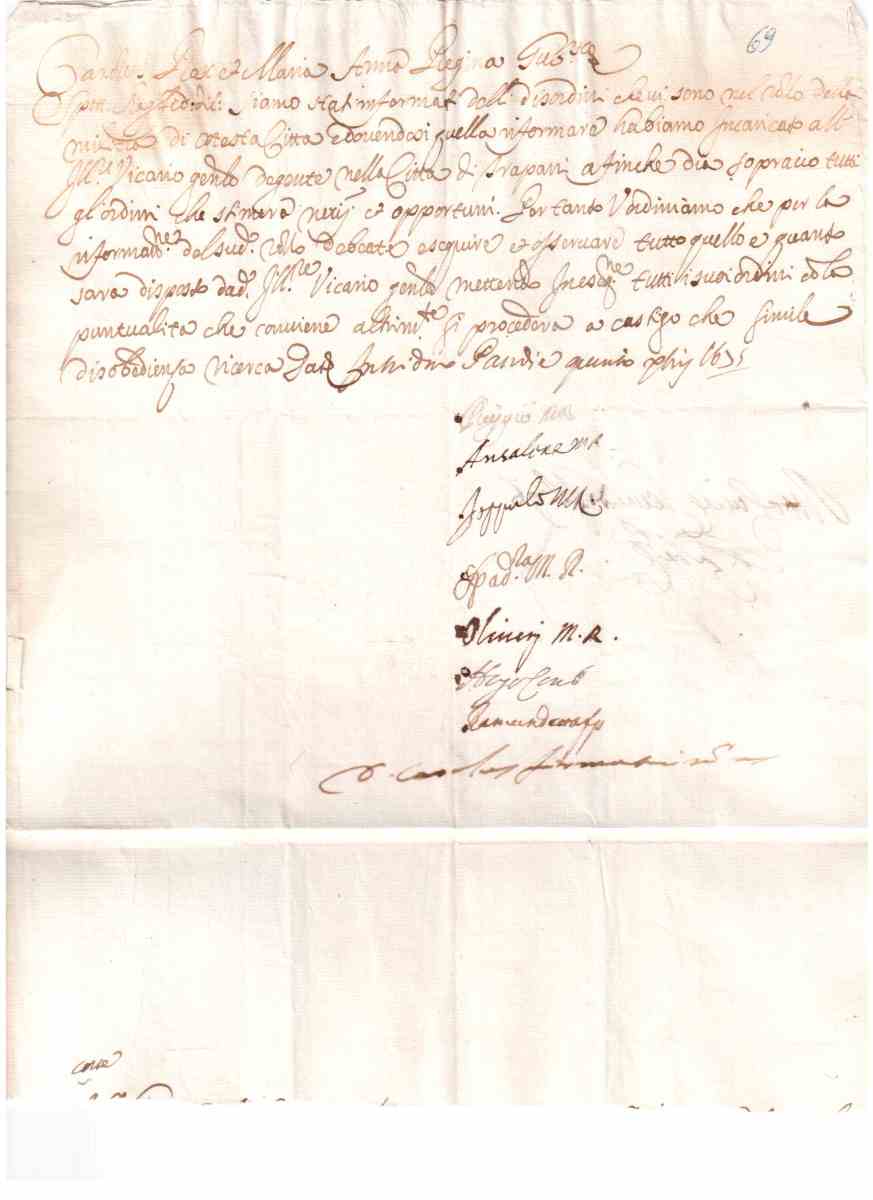 69
Carlus Rex et Maria Anna Regina Gub.
Spett. Reg. fed. dil. Siamo stati informati delli disordini che vi sono nel rolo della
militia di cotesta Citta e dovendosi quella riformare habiamo incaricato all
Ill.e Vicario gen.le degente nella Citta di Trapani a finche dia sopra cio tutti
gl'ordini che stimera necrij et opportuni. Per tanto v'ordiniamo che per la
riforma.ne del sud.o rolo debeate eseguire et osservare tutto quello e quanto
sara disposto da d. Ill.re Vicario gen.le mettendo in esec.ne tutti i suoi ordini co la
puntualita che conviene altrim.te si procedera a castigo che simile
disobedienza ricerca Dat
quinto 1675
Reggio M.R.
Ansalone M R
Joppulo M.R.
Spad.ra M. R.
Oliverj M. R.
Ramundetta fp